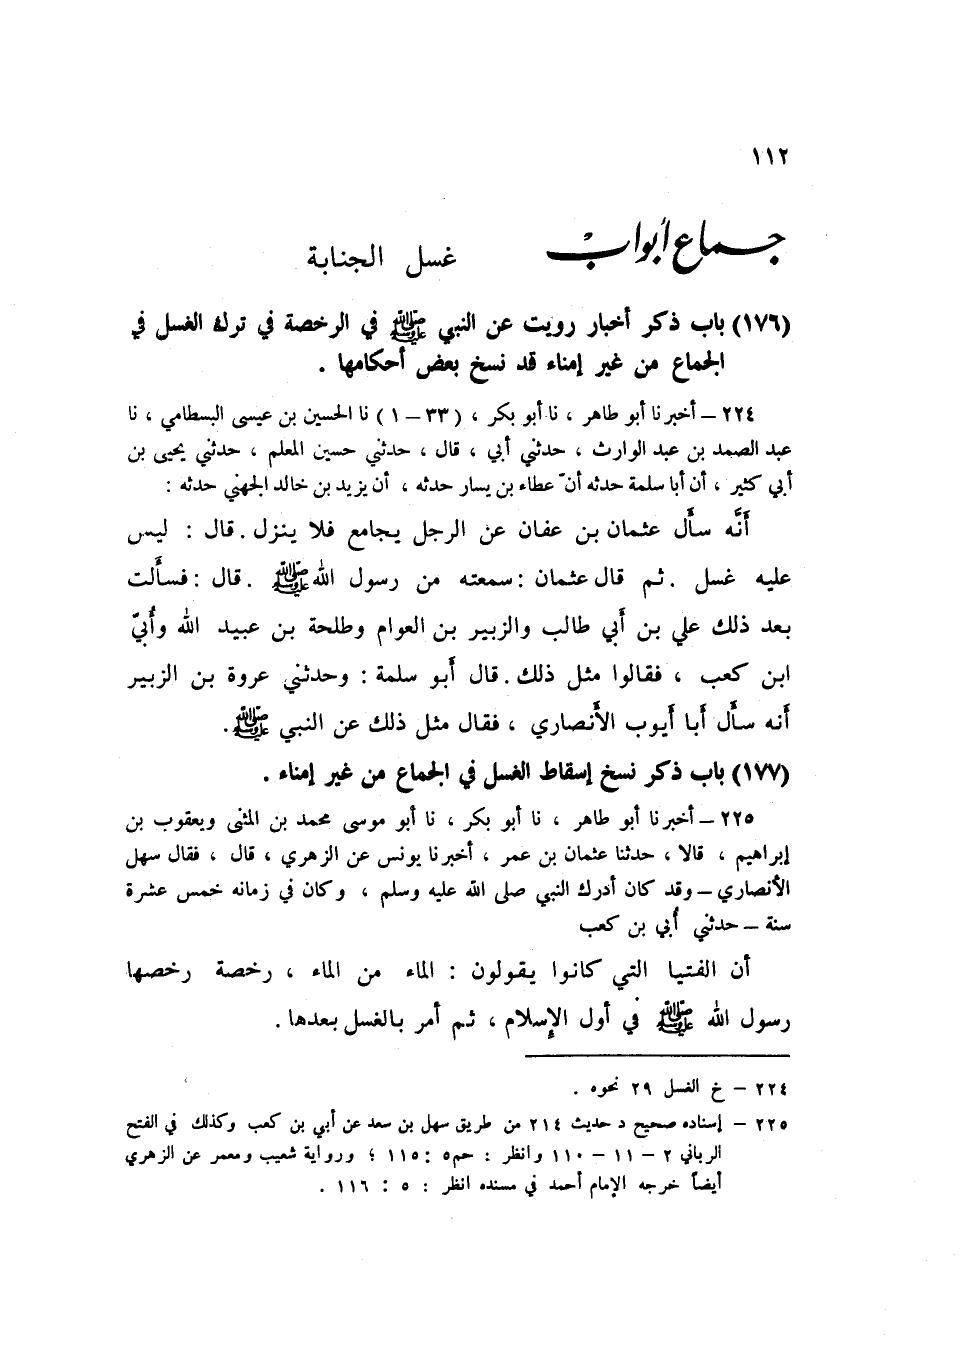 ١١٢
جماع أبواب غسل الجنابة
(١٧٦) باب ذكر أخبار رويت عن النبي ﷺ في الرخصة في ترك الغسل في
الجماع من غير إمناء قد نسخ بعض أحكامها .
٢٢٤ – أخبرنا أبو طاهر ، نا أبو بكر ، (٣٣ – ١) نا الحسين بن عيسى البسطامي ، نا
عبد الصمد بن عبد الوارث ، حدثني أبي ، قال ، حدثني حسين المعلم ، حدثني يحيى بن
أبي كثير ، أن أبا سلمة حدثه أنّ عطاء بن يسار حدثه ، أن يزيد بن خالد الجهني حدثه :
أَنَّه سأَل عثمان بن عفان عن الرجل يجامع فلا ينزل . قال : ليس
عليه غسل . ثم قال عثمان : سمعته من رسول الله ﷺ . قال : فسأَلت
بعد ذلك علي بن أَبي طالب والزبير بن العوام وطلحة بن عبيد الله وأُبيّ
ابن كعب ، فقالوا مثل ذلك . قال أَبو سلمة : وحدثني عروة بن الزبير
أنه سأَل أَبا أَيوب الأَنصاري ، فقال مثل ذلك عن النبي ﷺ .
(١٧٧) باب ذكر نسخ إسقاط الغسل في الجماع من غير إمناء .
٢٢٥ – أخبرنا أبو طاهر ، نا أبو بكر ، نا أبو موسى محمد بن المثنى ويعقوب بن
إبراهيم ، قالا ، حدثنا عثمان بن عمر ، أخبرنا يونس عن الزهري ، قال ، فقال سهل
الأنصاري – وقد كان أدرك النبي صلى الله عليه وسلم ، وكان في زمانه خمس عشرة
سنة – حدثني أُبي بن كعب
أن الفتيا التي كانوا يقولون : الماء من الماء ، رخصة رخصها
رسول الله ﷺ في أول الإسلام ، ثم أمر بالغسل بعدها .
٢٢٤ – خ الغسل ٢٩ نحوه .
٢٢٥ – إسناده صحيح د حديث ٢١٤ من طريق سهل بن سعد عن أبي بن كعب وكذلك في الفتح
الرباني ٢ – ١١ – ١١٠ وانظر : حم ٥ : ١١٥ ؛ ورواية شعيب ومعمر عن الزهري
أيضاً خرجه الإمام أحمد في مسنده انظر : ٥ : ١١٦ .